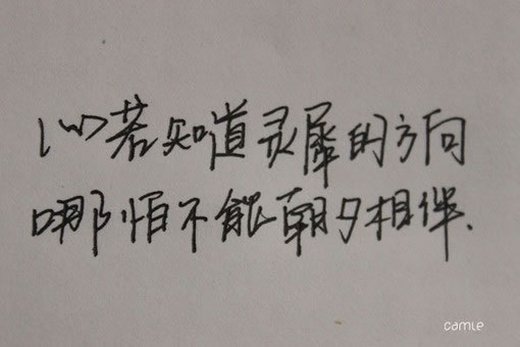 心若知道灵犀的方向
哪怕不能朝夕相伴.
camle